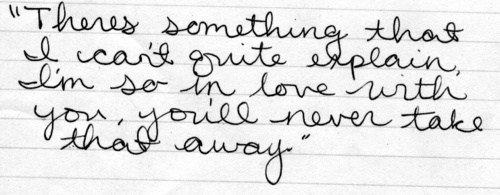 "Theres something that
I can't quite explain,
I'm so in love with
you, you'll never take
that away."